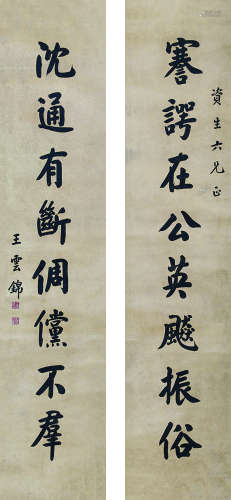 資生六兄正
謇諤在公英飈振俗
沈通有斷倜儻不羣
王雲錦